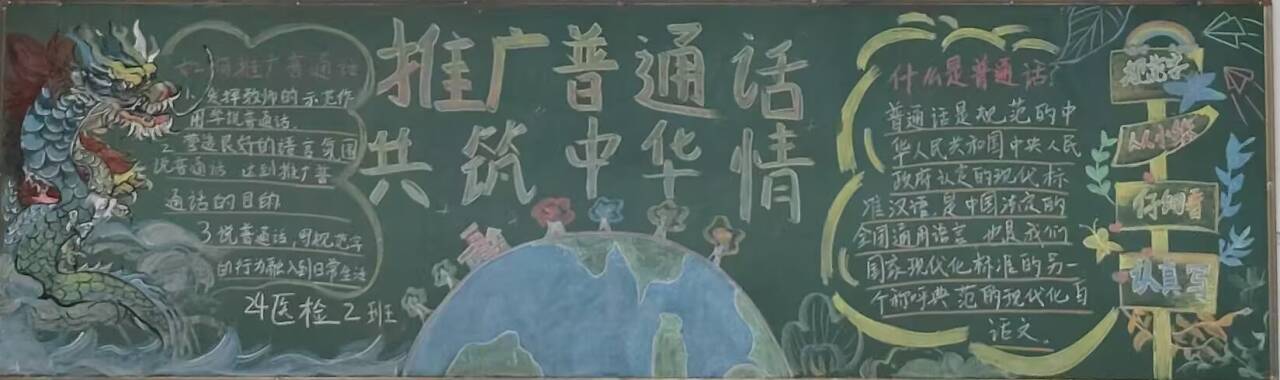 推广普通话
共筑中华情
如何推广普通话
1.发挥教师的示范作
用率说普通话.
2 营造良好的语言氛围
说普通话 达到推广普
通话的目的
3 说普通话,用规范字
的行为融入到日常生活
24医检2班
什么是普通话?
普通话是规范的中
华人民共和国中央人民
政府认定的现代标
准汉语,是中国法定的
全国通用语言 也是我们
国家现代化标准的另一
个称呼典范的现代化与
话文.
规范字
人人小
仔细看
认真写